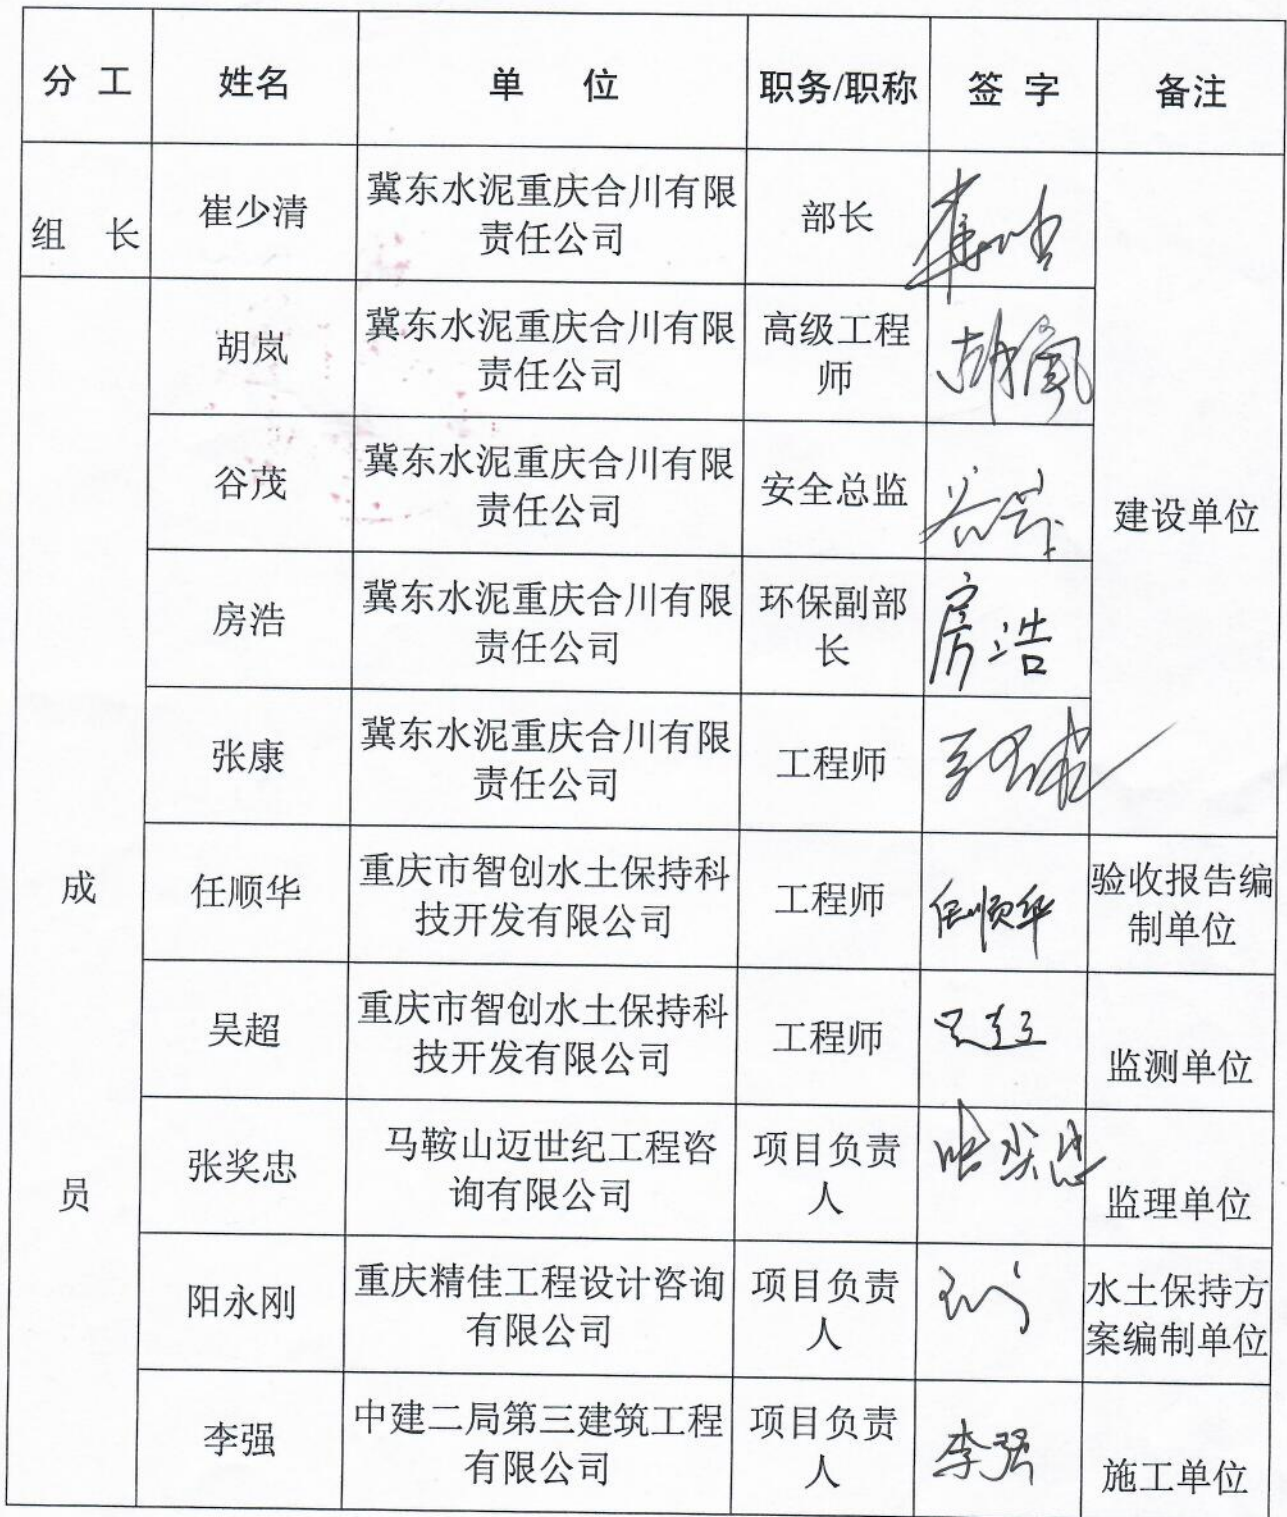 分 工 姓名 单 位 职务/职称 签 字 备注
组 长 崔少清 冀东水泥重庆合川有限
责任公司 部长
胡岚 冀东水泥重庆合川有限
责任公司 高级工程
师 胡岚
谷茂 冀东水泥重庆合川有限
责任公司 安全总监 谷茂 建设单位
房浩 冀东水泥重庆合川有限
责任公司 环保副部
长 房浩
张康 冀东水泥重庆合川有限
责任公司 工程师
成
员
任顺华 重庆市智创水土保持科
技开发有限公司 工程师 任顺华 验收报告编
制单位
吴超 重庆市智创水土保持科
技开发有限公司 工程师 吴超 监测单位
张奖忠 马鞍山迈世纪工程咨
询有限公司 项目负责
人 张奖忠 监理单位
阳永刚 重庆精佳工程设计咨询
有限公司 项目负责
人 水土保持方
案编制单位
李强 中建二局第三建筑工程
有限公司 项目负责
人 李强 施工单位